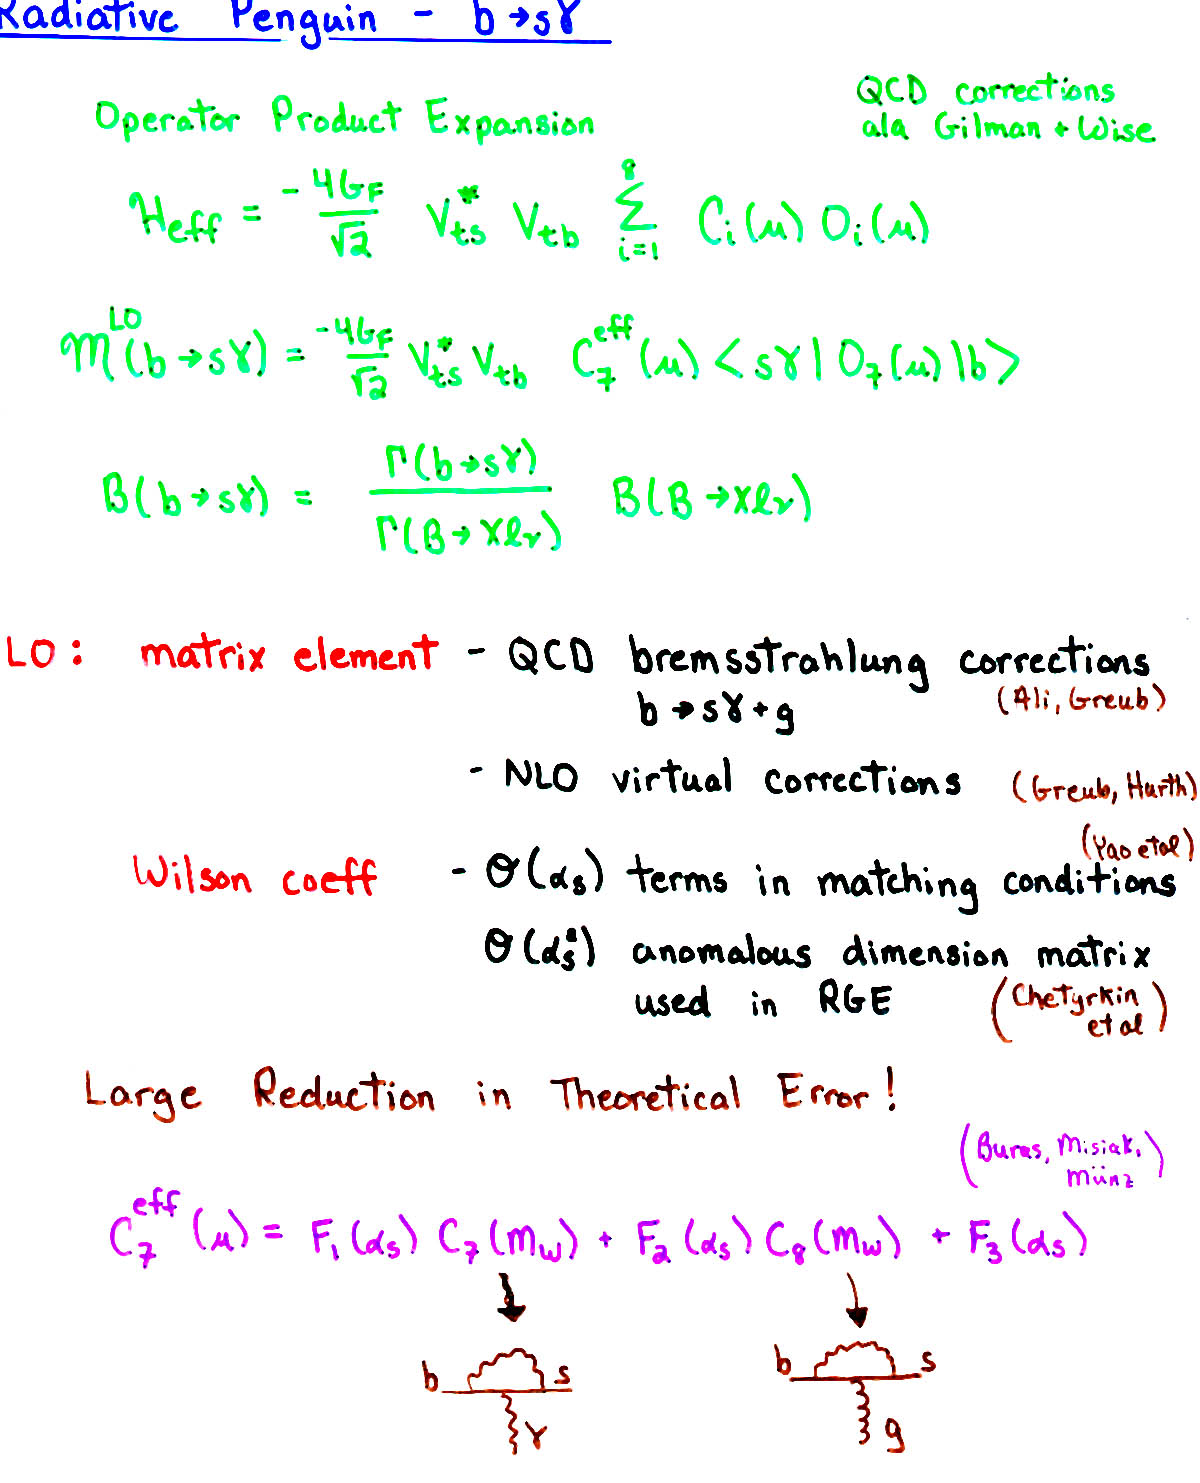 Radiative Penguin - b→sγ
Operator Product Expansion
QCD corrections
ala Gilman + Wise
H_eff = -4G_F/√2 V_ts^* V_tb Σ_{i=1}^{8} C_i(μ) O_i(μ)
M^LO(b→sγ) = -4G_F/√2 V_ts^* V_tb C_7^eff(μ) <sγ| O_7(μ) |b>
B(b→sγ) = Γ(b→sγ)/Γ(B→Xℓν) B(B→Xℓν)
LO: matrix element - QCD bremsstrahlung corrections
b→sγ+g (Ali, Greub)
- NLO virtual corrections (Greub, Hurth)
(Yao et al)
Wilson coeff - O(α_s) terms in matching conditions
O(α_s^2) anomalous dimension matrix
used in RGE (Chetyrkin et al)
Large Reduction in Theoretical Error!
(Buras, Misiak, Münz)
C_7^eff(μ) = F_1(α_s) C_7(M_W) + F_2(α_s) C_8(M_W) + F_3(α_s)
b s b s
γ g